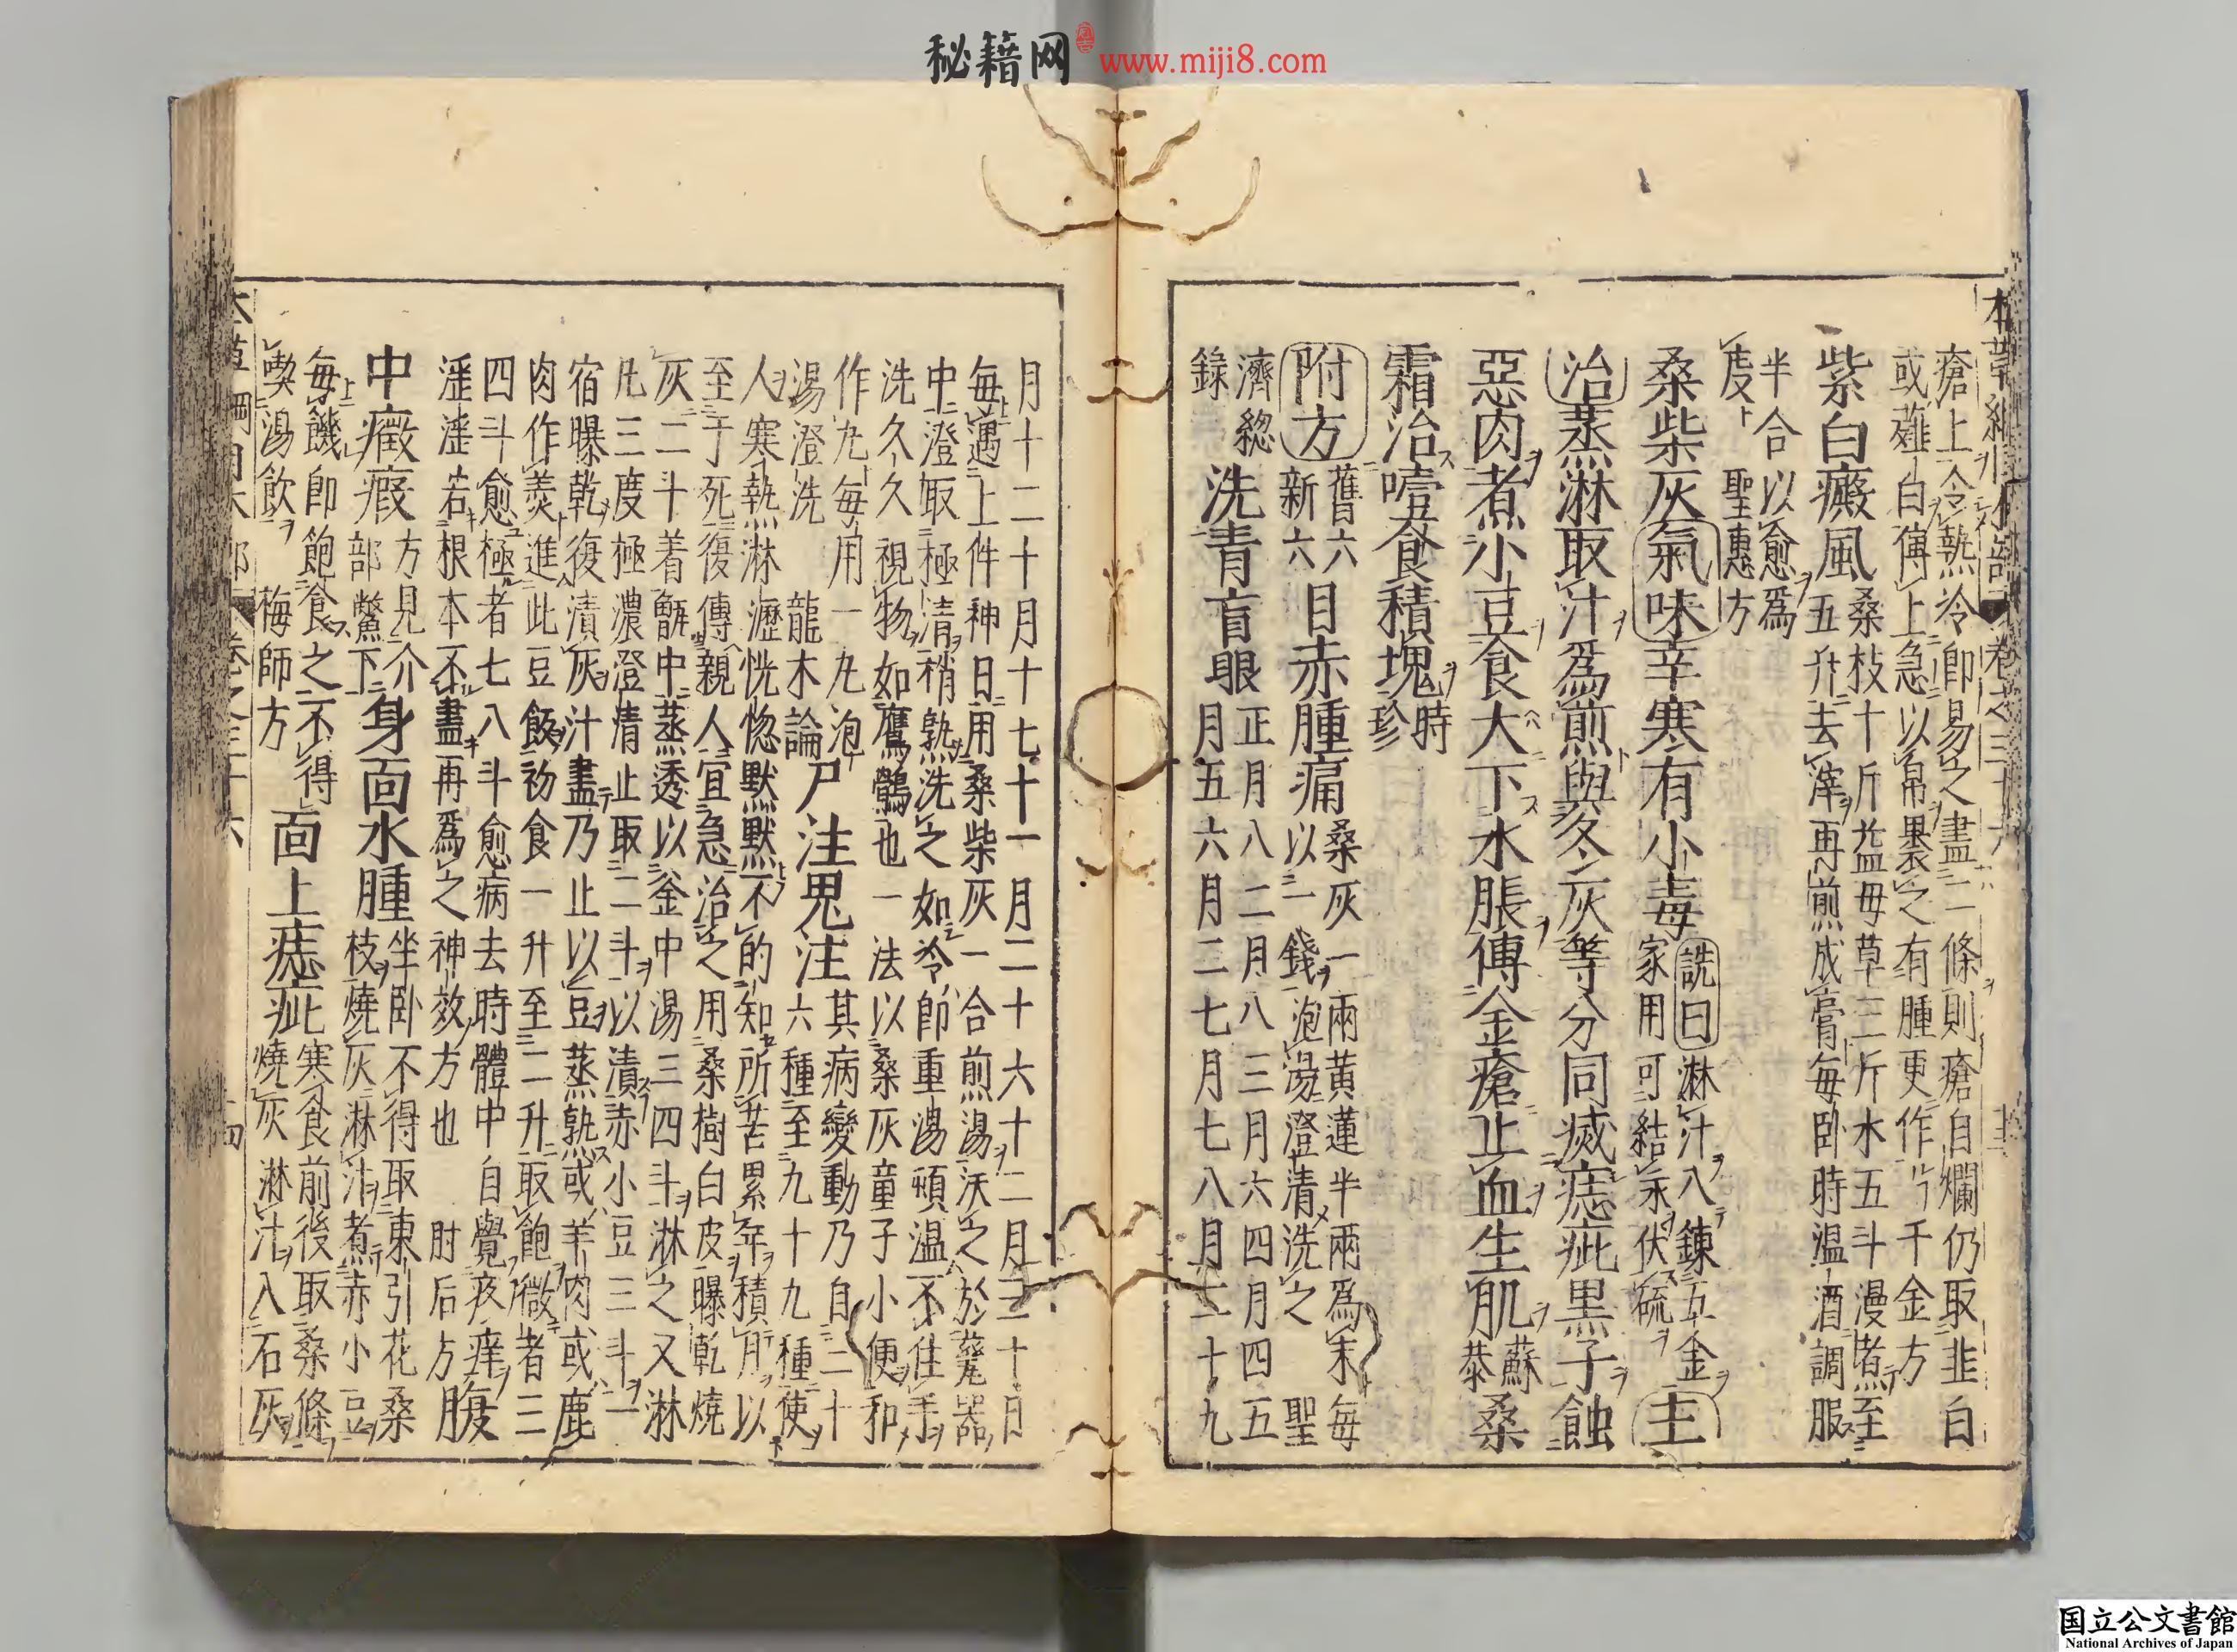 秘籍网 www.miji8.com
瘡上令熱冷即易之盡二條則瘡自爛仍取韭白
或薤白傅上急以帛裹之有腫更作千金方
紫白癜風
桑枝十斤益母草三斤水五斗漫煮至
五升去滓再煎成膏每卧時温酒調服
半合以愈爲
度聖惠方
桑柴灰氣味辛寒有小毒
詵曰淋汁八鍊五金
家用可結汞伏硫
主
治蒸淋取汁爲煎與冬灰等分同滅痣疵黒子蝕
惡肉煮小豆食大下水脹傅金瘡止血生肌
蘇
恭
桑
霜治噎食積塊
時
珍
附方
舊六
新六
目赤腫痛
桑灰一兩黄蓮半兩爲末每
以一錢泡湯澄清洗之 聖
濟緫
錄
洗青盲眼
正月八二月八三月六四月四五
月五六月二七月七八月二十九
月十二十月十七十一月二十六十二月三十日
每遇上件神日用桑柴灰一合煎湯沃之於甆器
中澄取極清稍熟洗之如冷即重湯頓温不住手
洗久久視物如鷹鸇也一法以桑灰童子小便和
作丸每用一丸泡
湯澄洗 龍木論
尸注鬼注
其病變動乃自二十
六種至九十九種使
人寒熱淋瀝恍惚默默不的知所苦累年積月以
至于死復傳親人宜急治之用桑樹白皮曝乾燒
灰二斗着甑中蒸透以釜中湯三四斗淋之又淋
凡三度極濃澄清止取二斗以漬赤小豆三斗一
宿曝乾復漬灰汁盡乃止以豆蒸熟或羊肉或鹿
肉作羮進此豆飯初食一升至二升取飽微者三
四斗愈極者七八斗愈病去時體中自覺夜痒
淫淫若根本不盡再爲之神效方也 肘后方
腹
中癥瘕
方見介
部鱉下
身面水腫
坐卧不得取東引花桑
枝燒灰淋汁煮赤小豆
每饑即飽食之不得
喫湯飲 梅師方
面上痣疵
寒食前後取桑條
燒灰淋汁入石灰
国立公文書館
National Archives of Japan